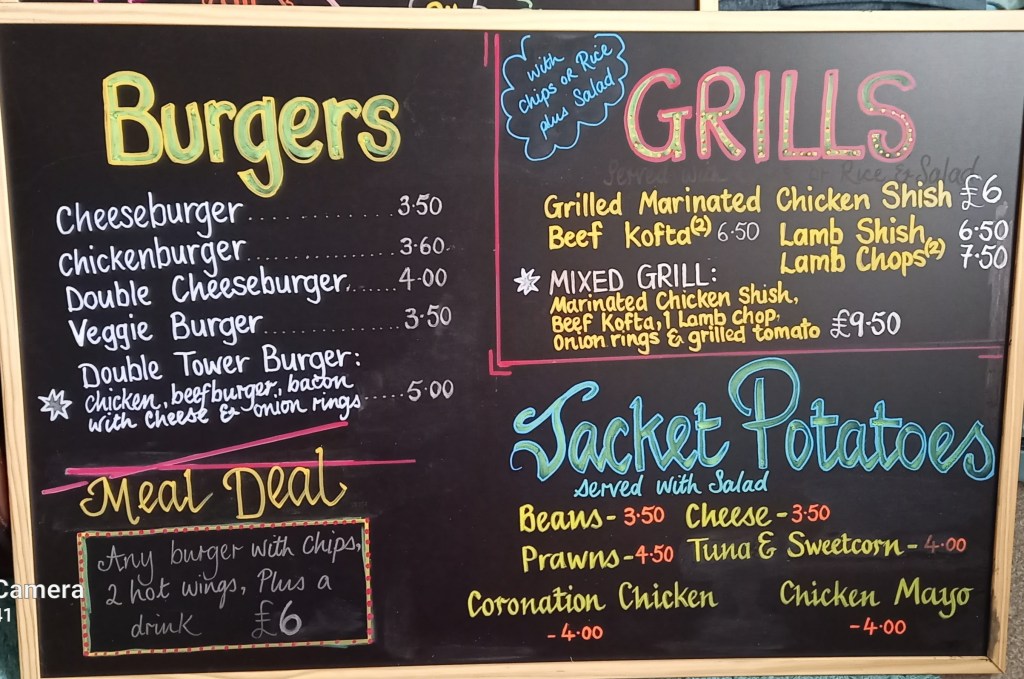 Burgers
Cheeseburger.................3.50
Chickenburger................3.60
Double Cheeseburger......4.00
Veggie Burger................3.50
Double Tower Burger:
chicken, beefburger, bacon
with cheese & onion rings......5.00
Meal Deal
Any burger with chips,
2 hot wings, Plus a
drink £6
with
chips OR Rice
plus Salad
GRILLS
Served with or Rice & Salad
Grilled Marinated Chicken Shish £6
Beef Kofta(2) 6.50 Lamb Shish 6.50
Lamb Chops(2) 7.50
MIXED GRILL:
Marinated Chicken Shish,
Beef Kofta, 1 Lamb chop,
Onion rings & grilled tomato £9.50
Jacket Potatoes
served with Salad
Beans - 3.50 Cheese - 3.50
Prawns - 4.50 Tuna & Sweetcorn - 4.00
Coronation Chicken
- 4.00
Chicken Mayo
- 4.00
Camera
41